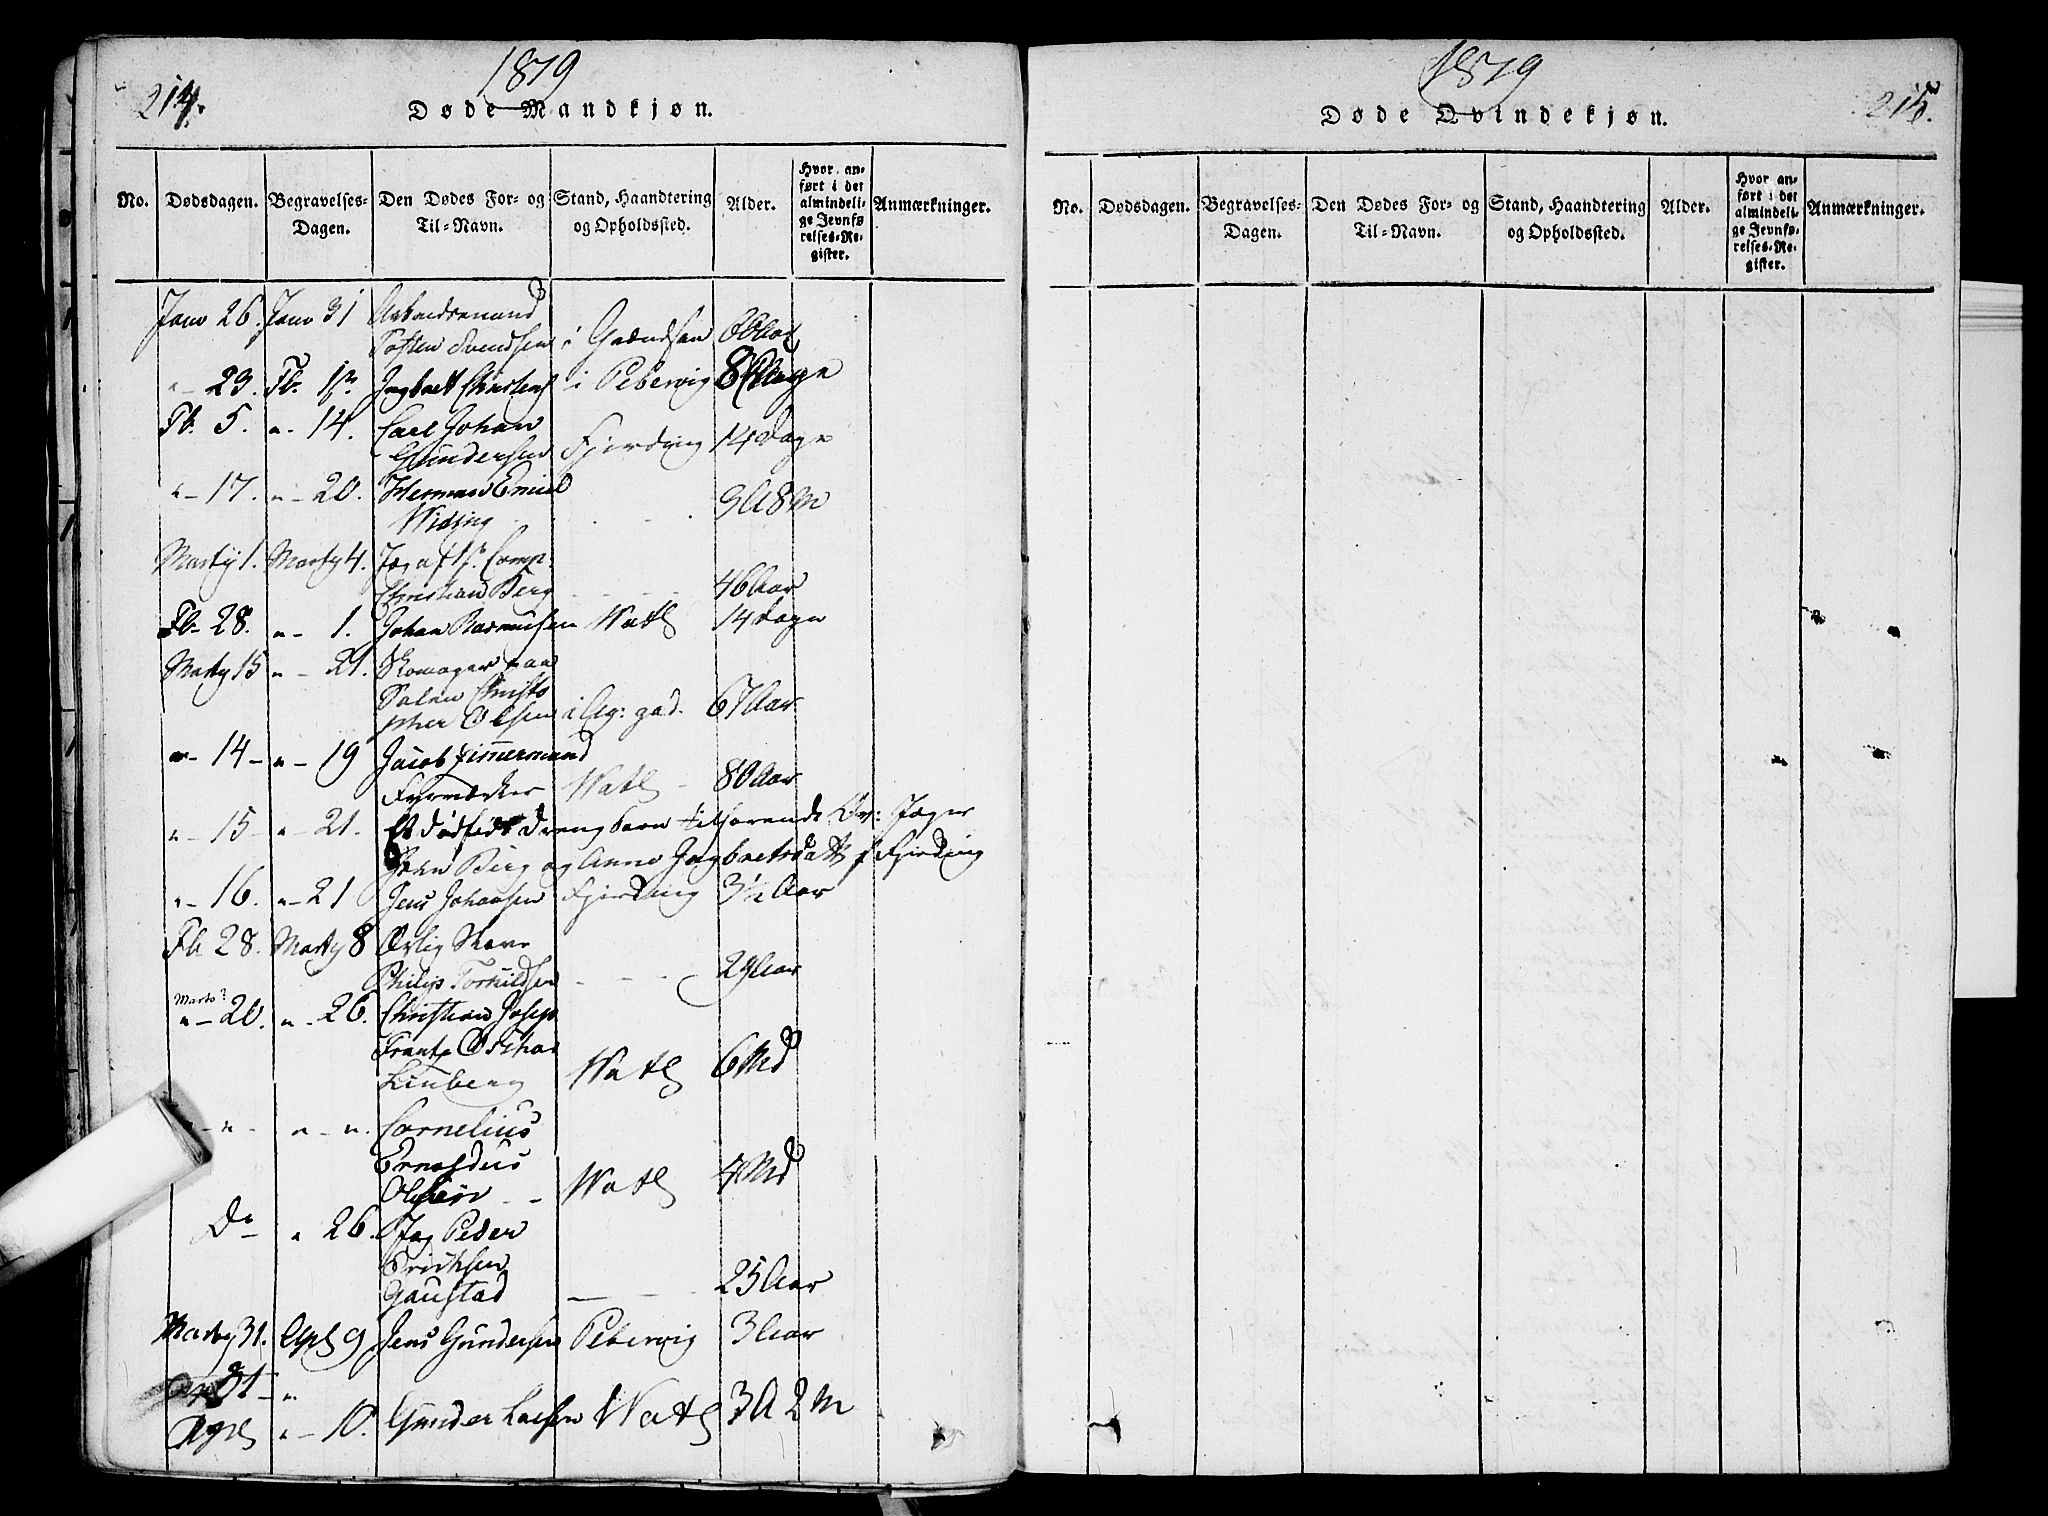 214.
1819
Døde Mandkjøn.
No. Dødsdagen. Begravelses-Dagen. Den Dødes For- og Til-Navn. Stand, Haandtering og Opholdssted. Alder. Hvor anført i det almindelige Jevnførelses-Register. Anmærkninger.
Janv 26. Janv 31 Arbeidsmand
Tosten Svendsen i Grændsen 66 Aar
" - 23. Fb. Ingbret Christens i Pebervig 8 Dage
Fb. 5. " - 14. Carl Johan
Gundersen Fjerding 14 Dage
" - 17. " - 20. Herman Emiel
Widing - - - 3 A 8 M
Marty 1. Marty 4. Jæg af 1st Comp:
Christian Berg - - - 46 Aar
Fb - 28. " - 1. Johan Rasmusen Watl 14 Dage
Marty 15 " - 21. Skomager paa
Salen Christo
pher Olsen i Ag: gad. 67 Aar
" - 14 - " - 19 Jacob Zimermand
Fyrvæcker Watl - 80 Aar
" - 15 - " - 21. Et dødfødt Drengbarn tilhørende Jæger
John Berg og Anne Ingbretsdatt Fjerding
" - 16. " - 21 Jens Johansen Fjerding 3 1/2 Aar
Fb 28. Marty 8 Slave
Philip Torkildsen - - - 29 Aar
Marts?
" - 20. " - 26. Christian Josep
Frantz Oskar
Linberg Watl 6 Md
" - " - " - ". Cornelius
Ernesdus
- - Watl 4 Md
Do " 26. Jæg Peder
Erichsen
Gaustad - - - 25 Aar
Marty 31. Apl 9 Jens Gundersen Pebervig 3 Aar
31 - "
Apl " - 10. Gunder Larsen Watl 3 A 2 M
1819
215.
Døde Qvindekjøn.
No. Dødsdagen. Begravelses-Dagen. Den Dødes For- og Til-Navn. Stand, Haandtering og Opholdssted. Alder. Hvor anført i det almindelige Jevnførelses-Register. Anmærkninger.